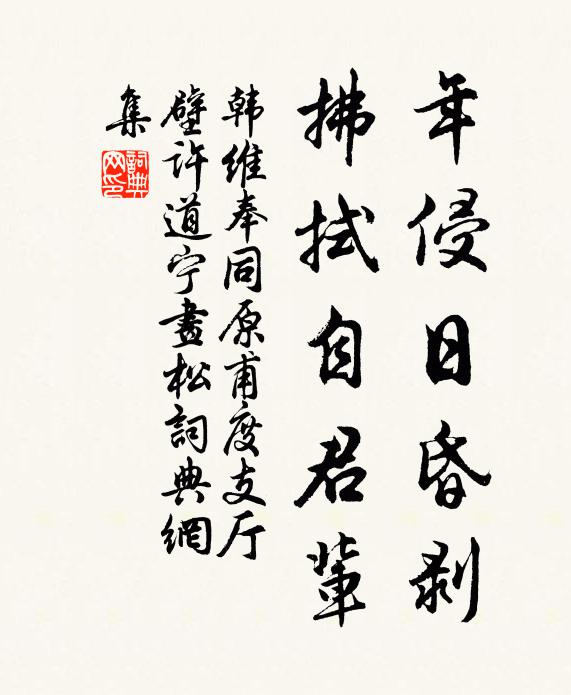 年侵日昏剥
拂拭自君輩
韩维奉同原甫度支厅
壁许道宁畫松詞典網
集
詞典网印